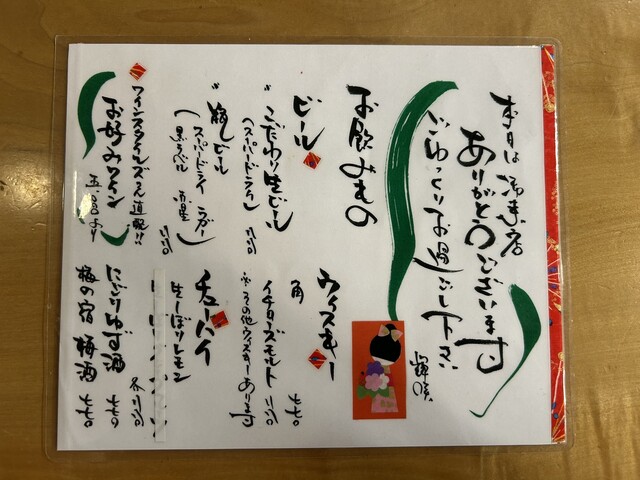 本日は御来店
ありがとうございます
ごゆっくりお過ごし下さい
お飲みもの
ビール
こだわり生ビール
（スーパードライ）
瓶ビール
（スーパードライ ラガー
黒ラベル 赤星）
ワインスタイルズさん直配!!
お好みワイン
五、〇〇〇より
ウィスキー
角 七七〇
イチローズモルト
※その他ウィスキーあります
チューハイ
生しぼりレモン
にごりゆず酒 七七〇
梅の宿 梅酒 七七〇